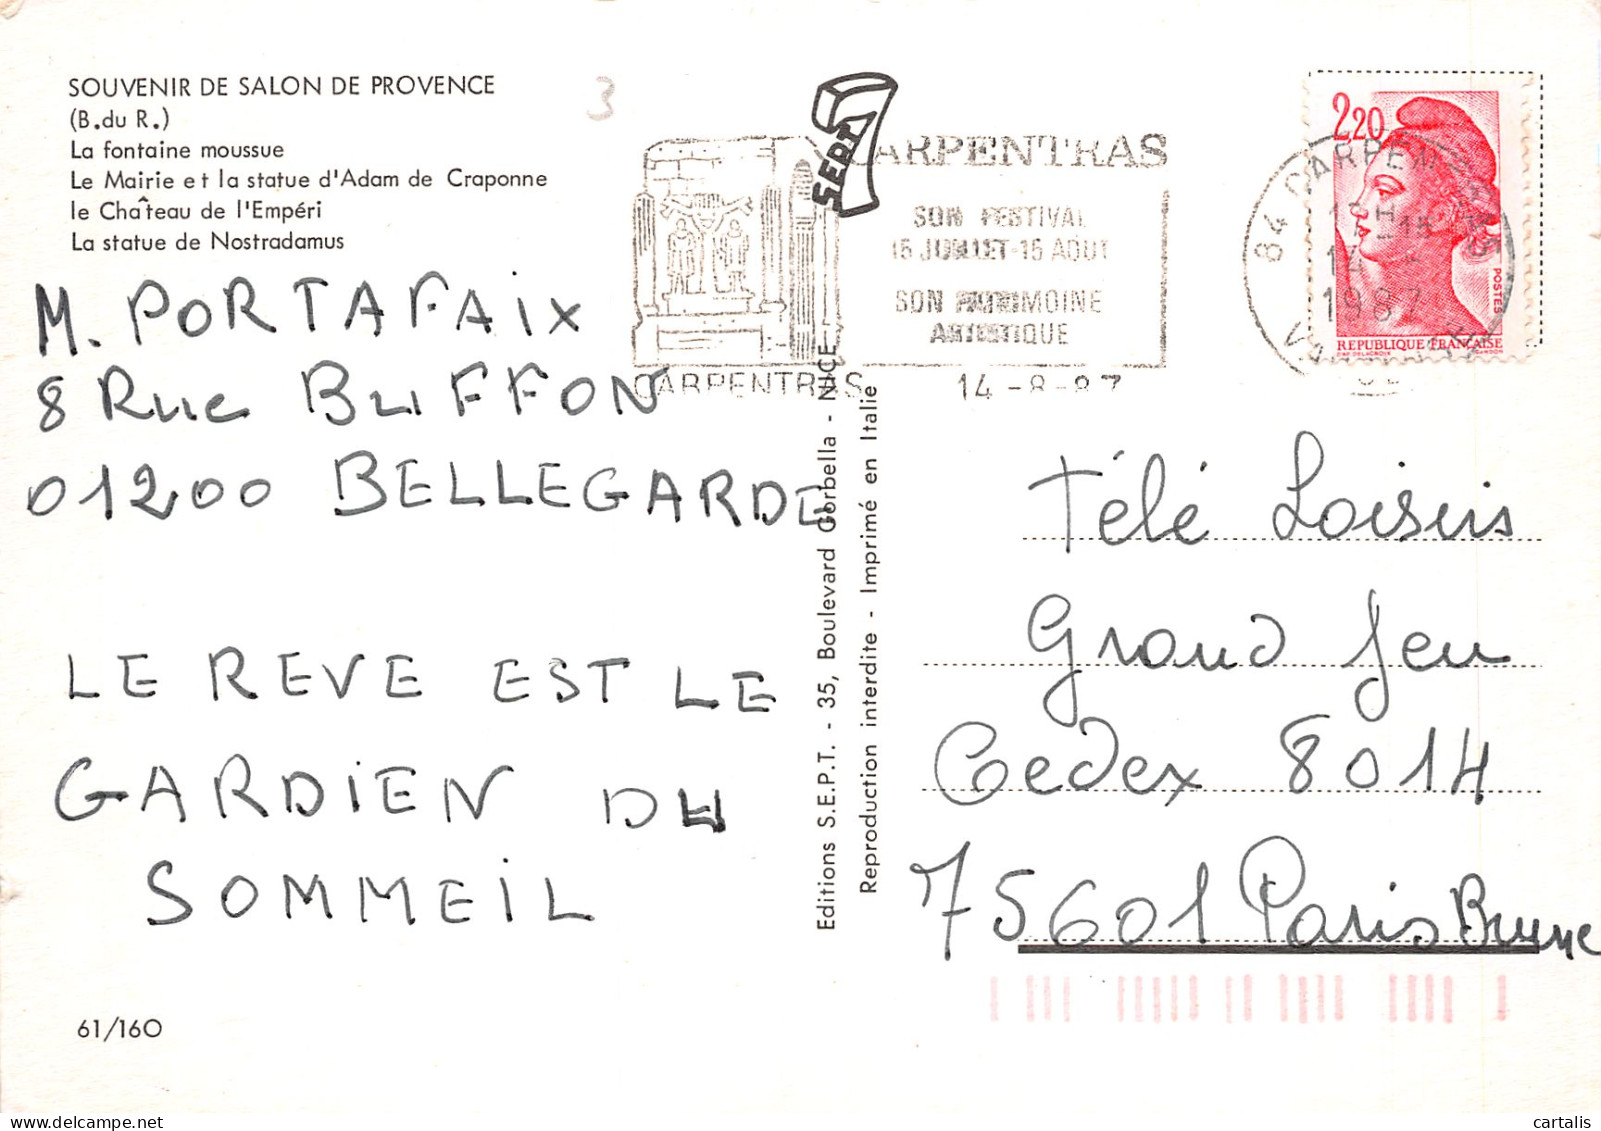 SOUVENIR DE SALON DE PROVENCE
(B.du R.)
La fontaine moussue
Le Mairie et la statue d'Adam de Craponne
le Château de l'Empéri
La statue de Nostradamus
3
M. PORTAFAIX
8 Rue BUFFON
01200 BELLEGARDE
LE REVE EST LE
GARDIEN DU
SOMMEIL
61/160
SEPT
CARPENTRAS
SON FESTIVAL
15 JUILLET-15 AOUT
SON PATRIMOINE
ARTISTIQUE
CARPENTRAS
14-8-87
Editions S.E.P.T. - 35, Boulevard Gorbella - NICE
Reproduction interdite - Imprimé en Italie
2,20
POSTES
REPUBLIQUE FRANÇAISE
84 CARPENTRAS
1987
Télé Loisirs
Grand Jeu
Cedex 8014
75601 Paris Brune
cartalis